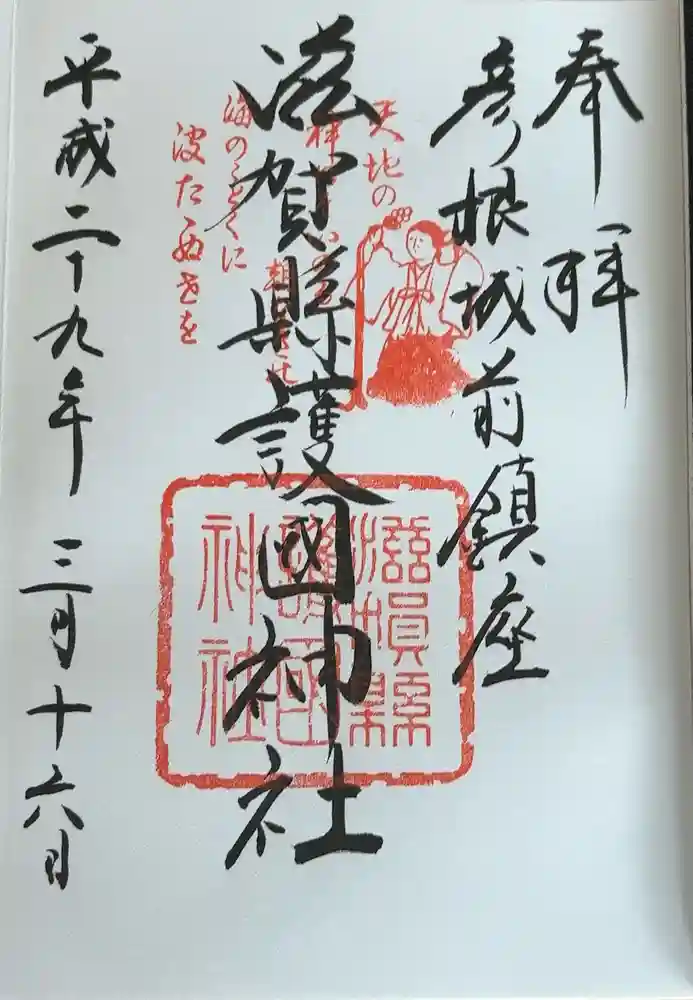 奉拝
彦根城前鎮座
滋賀縣護國神社
平成二十九年三月十六日
天地の
海のごとくに
波たゝぬ世を
滋賀縣護國神社